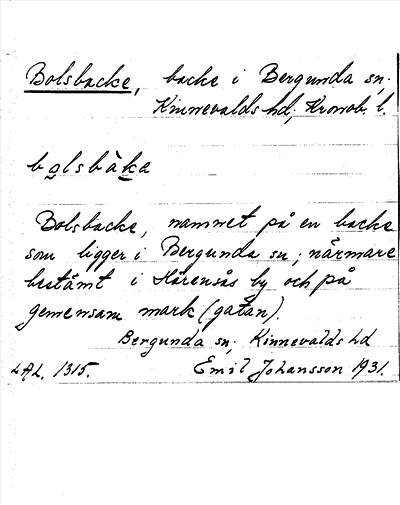 Bolsbacke, backe i Bergunda sn.
Kinnevalds hd, Kronob. l.
bolsbàka
Bolsbacke, namnet på en backe
som ligger i Bergunda sn; närmare
bestämt i Hörensås by och på
gemensam mark (gatan).
Bergunda sn, Kinnevalds hd
LAL. 1315. Emil Johansson 1931.